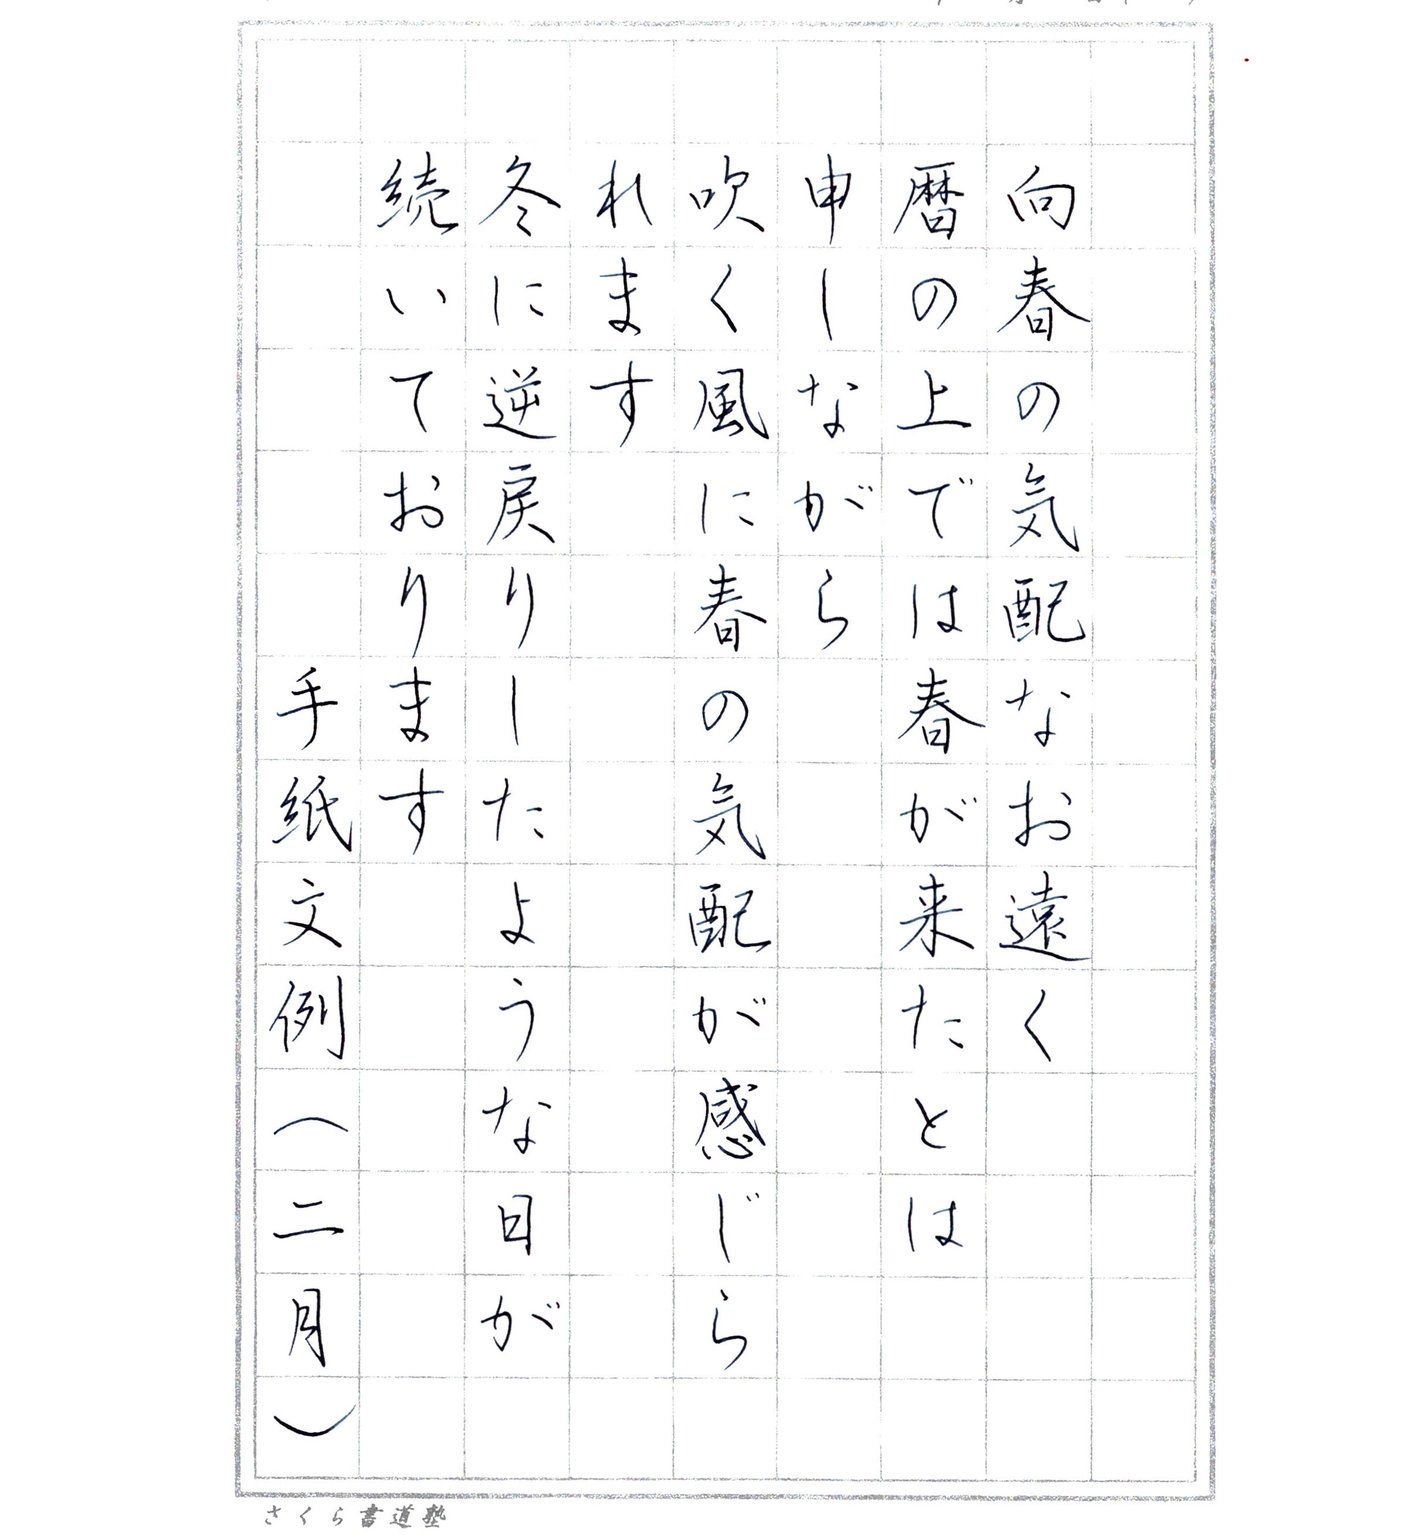 向春の気配なお遠く
暦の上では春が来たとは
申しながら
吹く風に春の気配が感じら
れます
冬に逆戻りしたような日が
続いております
手紙文例（二月）
さくら書道塾